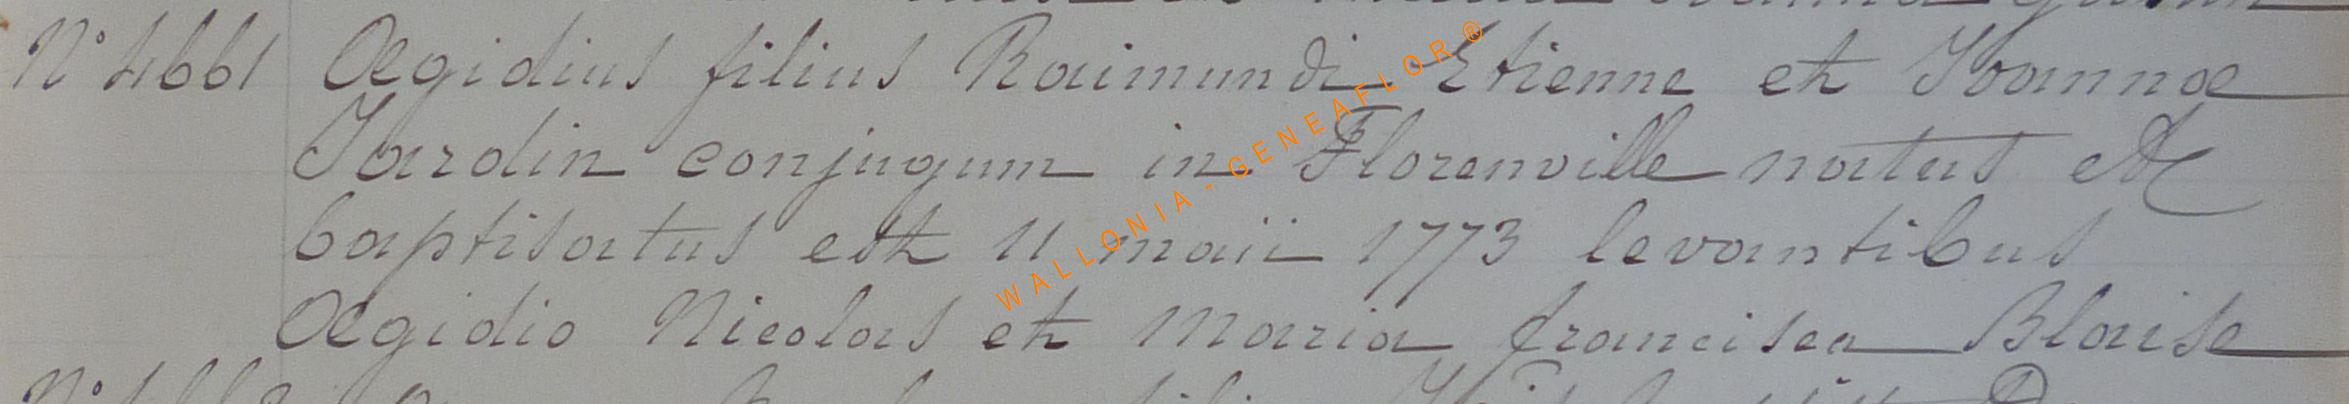 N° 4661 Ægidius filius Raimundi Etienne et Joannæ
Jardin conjugum in Florenville natus et
baptisatus est 11 maii 1773 levantibus
Ægidio Nicolas et Maria francisca Blaise
WALLONIA - GENEAFLOR®